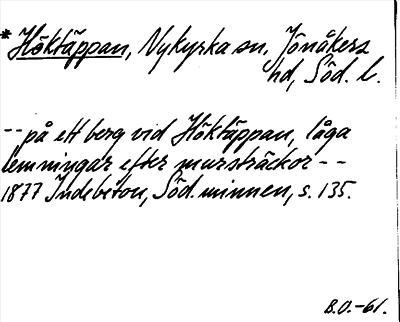 * Höktäppan, Nykyrka sn, Jönåkers
hd, Söd. l.
-- på ett berg vid Höktäppan, låga
lemningar efter mursträckor --
1877 Indebetou, Söd. minnen, s. 135.
B.O.-61.